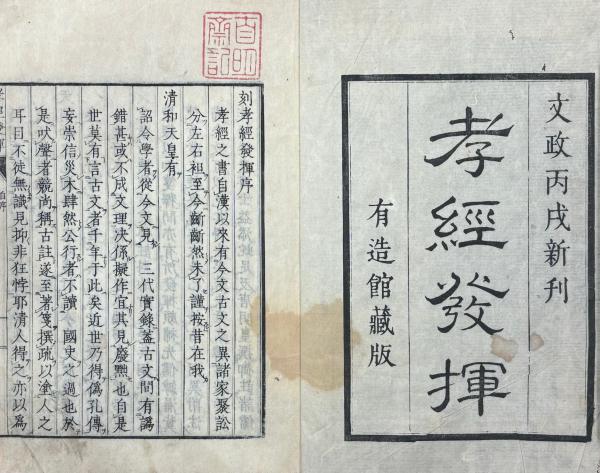 文政丙戌新刊
孝經發揮
有造館藏版
刻孝經發揮序
孝經之書自漢以來有今文古文之異諸家聚訟
分左右袒至今斷斷然未了謹按昔在我
清和天皇有
詔令學者從今文見 三代實錄蓋古文間有譌
錯甚或不成文理决係擬作宜其見廢黜也自是
世莫有言古文者千年于此矣近世乃得偽孔傳
妄崇信災木肆然公行者不讀 國史之過也於
是吠聲者競尚稱古註遂至著箋撰疏以塗人之
耳目不徒無識見抑非狂悖耶清人得之亦以爲